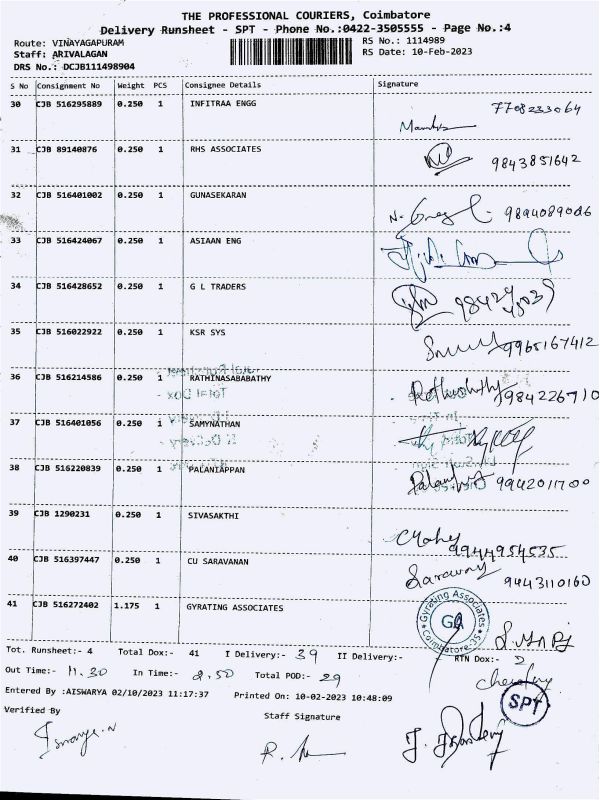 THE PROFESSIONAL COURIERS, Coimbatore
Delivery Runsheet - SPT - Phone No.:0422-3505555 - Page No.:4
Route: VINAYAGAPURAM
RS No.: 1114989
Staff: ARIVALAGAN
RS Date: 10-Feb-2023
DRS No.: DCJB111498904
S No Consignment No Weight PCS Consignee Details Signature
30 CJB 516295889 0.250 1 INFITRAA ENGG 7708233064
31 CJB 89140876 0.250 1 RHS ASSOCIATES 9843851642
32 CJB 516401002 0.250 1 GUNASEKARAN 9894089006
33 CJB 516424067 0.250 1 ASIAAN ENG
34 CJB 516428652 0.250 1 G L TRADERS
35 CJB 516022922 0.250 1 KSR SYS 9965167412
36 CJB 516214586 0.250 1 RATHINASABABATHY 984226710
37 CJB 516401056 0.250 1 SAMYNATHAN
38 CJB 516220839 0.250 1 PALANIAPPAN 9942011700
39 CJB 1290231 0.250 1 SIVASAKTHI 9944954535
40 CJB 516397447 0.250 1 CU SARAVANAN 9443110160
41 CJB 516272402 1.175 1 GYRATING ASSOCIATES
Gyrating Associates
GA
Coimbatore-35
Tot. Runsheet:- 4 Total Dox:- 41 I Delivery:- 39 II Delivery:- RTN Dox:- 2
Out Time:- 11.30 In Time:- 2.50 Total POD:- 29
Entered By :AISWARYA 02/10/2023 11:17:37 Printed On: 10-02-2023 10:48:09
SPT
Verified By
Staff Signature